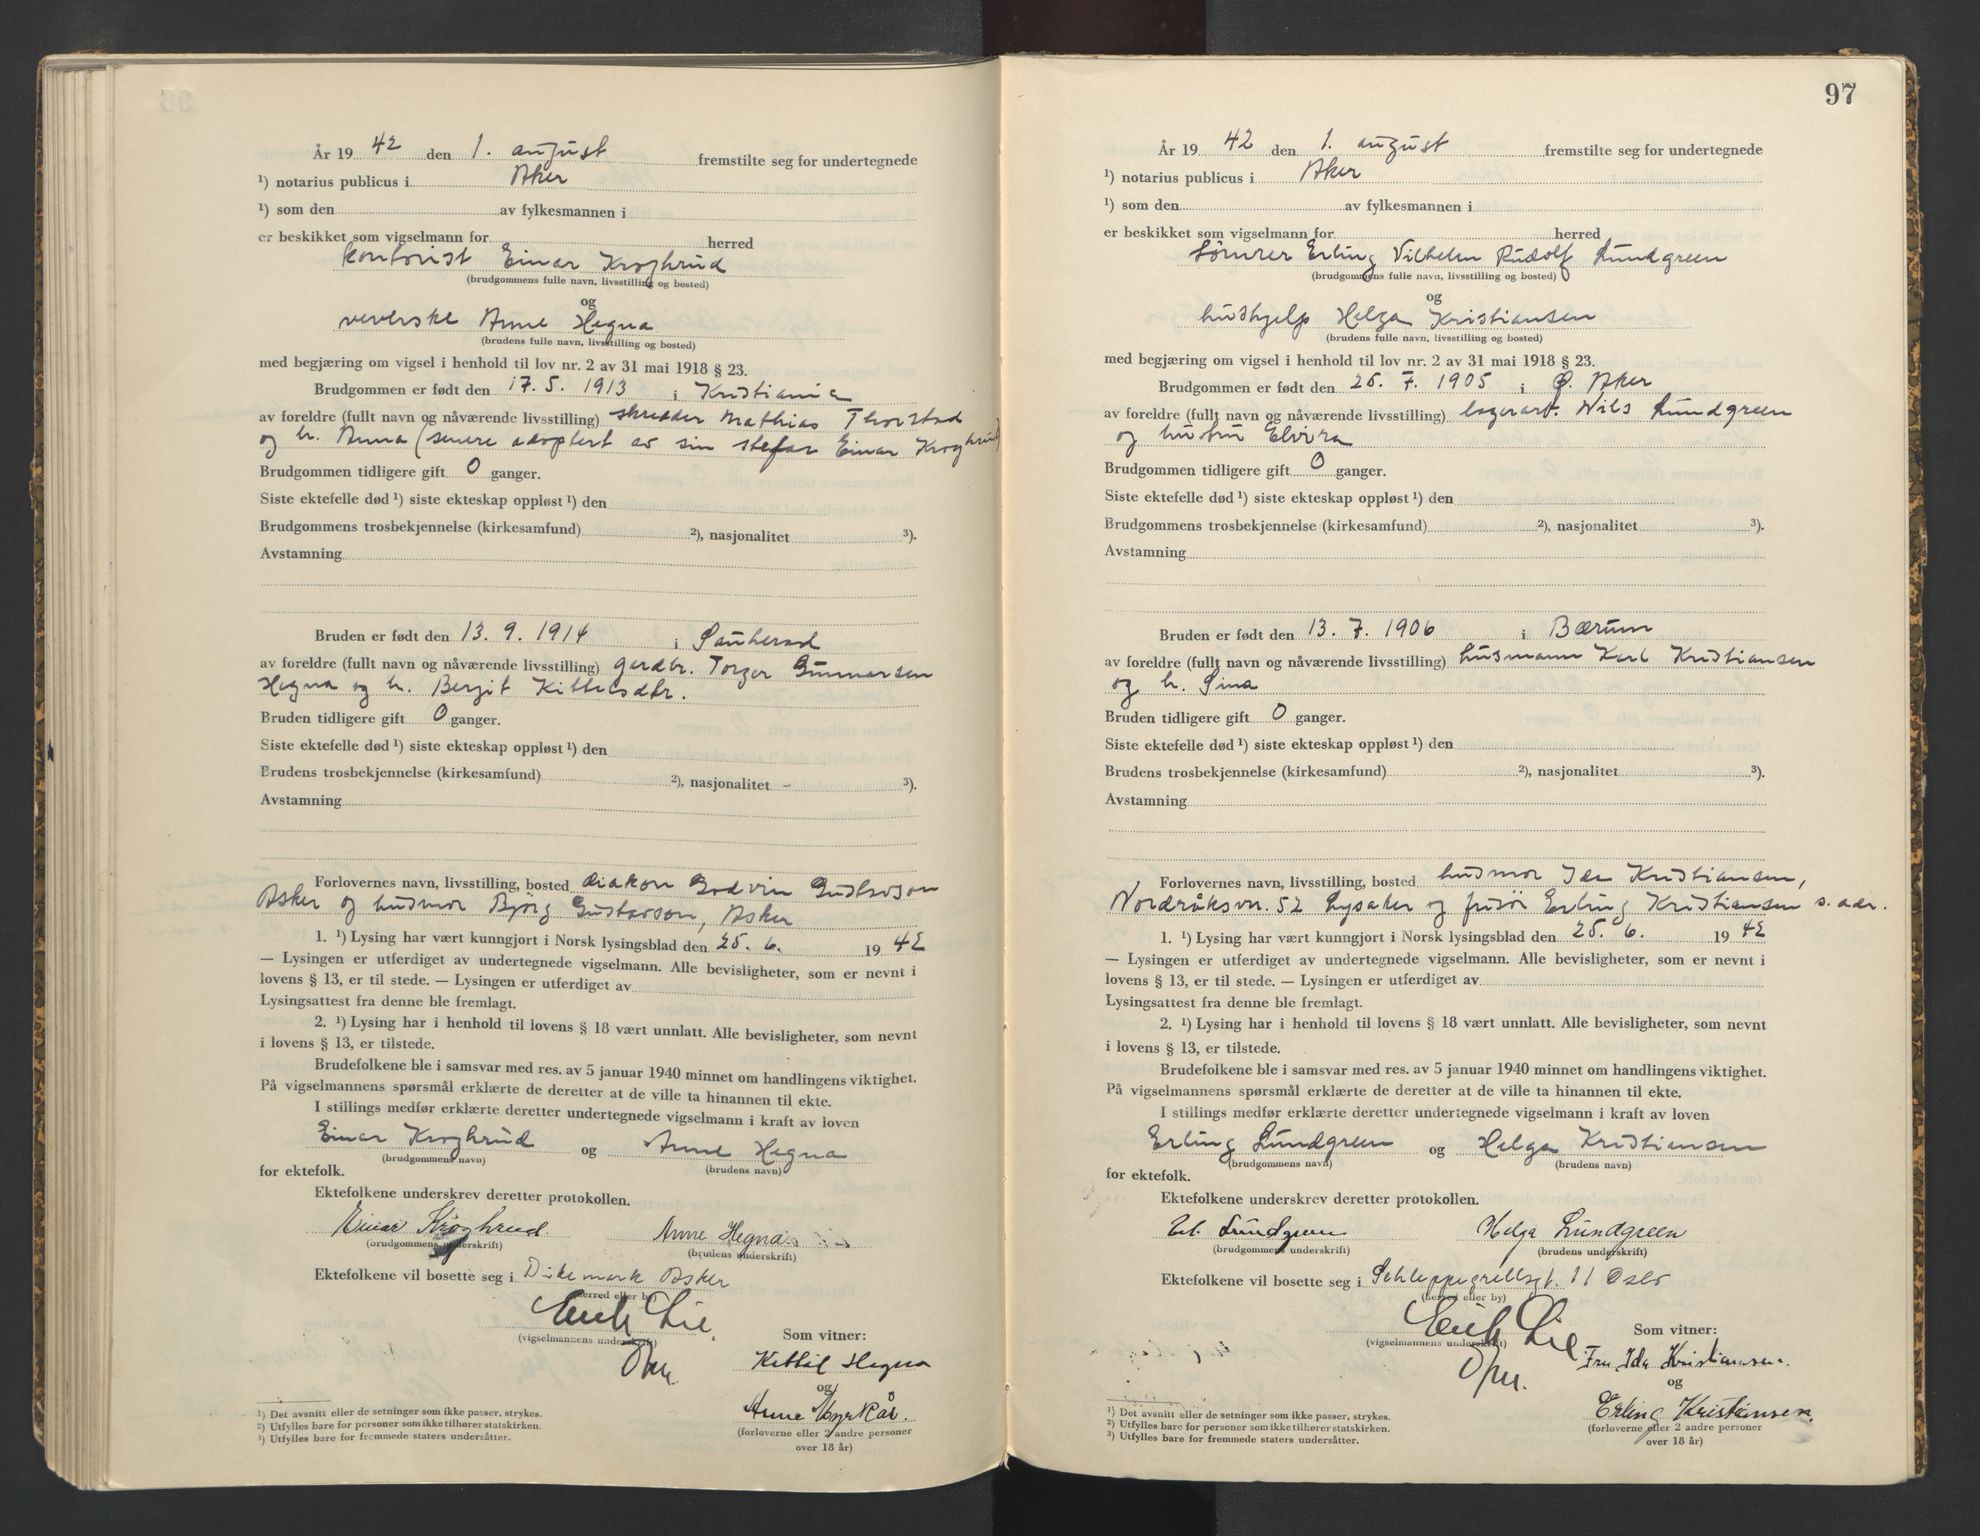 År 19 42 den 1. august fremstilte seg for undertegnede
¹) notarius publicus i Aker
¹) som den av fylkesmannen i
er beskikket som vigselmann for herred
kontorist Einar Kroghrud
(brudgommens fulle navn, livsstilling og bosted)
og
veverske Anne Hegna
(brudens fulle navn, livsstilling og bosted)
med begjæring om vigsel i henhold til lov nr. 2 av 31 mai 1918 § 23.
Brudgommen er født den 17. 5. 1913 i Kristiania
av foreldre (fullt navn og nåværende livsstilling) skredder Mathias Thorstad
og h. Anna (senere adoptert av sin stefar Einar Kroghrud)
Brudgommen tidligere gift 0 ganger.
Siste ektefelle død ¹) siste ekteskap oppløst ¹) den
Brudgommens trosbekjennelse (kirkesamfund) ²), nasjonalitet ³).
Avstamning
Bruden er født den 13. 9. 1914 i Sauherad
av foreldre (fullt navn og nåværende livsstilling) gardbr. Torger Gunnarsen
Hegna og h. Bergit Kittilsdtr.
Bruden tidligere gift 0 ganger.
Siste ektefelle død ¹) siste ekteskap oppløst ¹) den
Brudens trosbekjennelse (kirkesamfund) ²), nasjonalitet - ³).
Avstamning
Forlovernes navn, livsstilling, bosted diakon Godvin Gustavson
Asker og husmor Bjørg Gustavson, Asker
1. ¹) Lysing har vært kunngjort i Norsk lysingsblad den 25. 6. 19 42
— Lysingen er utferdiget av undertegnede vigselmann. Alle bevisligheter, som er nevnt i
lovens § 13, er til stede. — Lysingen er utferdiget av
Lysingsattest fra denne ble fremlagt.
2. ¹) Lysing har i henhold til lovens § 18 vært unnlatt. Alle bevisligheter, som nevnt
i lovens § 13, er tilstede.
Brudefolkene ble i samsvar med res. av 5 januar 1940 minnet om handlingens viktighet.
På vigselmannens spørsmål erklærte de deretter at de ville ta hinannen til ekte.
I stillings medfør erklærte deretter undertegnede vigselmann i kraft av loven
Einar Kroghrud og Anne Hegna
(brudgommens navn) (brudens navn)
for ektefolk.
Ektefolkene underskrev deretter protokollen.
Einar Kroghrud. Anne Hegna.
(brudgommens underskrift) (brudens underskrift)
Ektefolkene vil bosette seg i Dikemark Asker
(herred eller by)
Erich Lie.
(vigselmannens underskrift)
Som vitner:
Kittil Hegna
og
Anne Myrkår.
(forloverne eller 2 andre personer
over 18 år)
¹) Det avsnitt eller de setninger som ikke passer, strykes.
²) Utfylles bare for personer som ikke tilhører statskirken.
³) Utfylles bare for fremmede staters undersåtter.
97
År 19 42 den 1. august fremstilte seg for undertegnede
¹) notarius publicus i Aker
¹) som den av fylkesmannen i
er beskikket som vigselmann for herred
tømrer Erling Vilhelm Rudolf Lundgreen
(brudgommens fulle navn, livsstilling og bosted)
og
hushjelp Helga Kristiansen
(brudens fulle navn, livsstilling og bosted)
med begjæring om vigsel i henhold til lov nr. 2 av 31 mai 1918 § 23.
Brudgommen er født den 25. 7. 1905 i Ø. Aker
av foreldre (fullt navn og nåværende livsstilling) lagerarb. Nils Lundgreen
og hustru Elvira
Brudgommen tidligere gift 0 ganger.
Siste ektefelle død ¹) siste ekteskap oppløst ¹) den
Brudgommens trosbekjennelse (kirkesamfund) ²), nasjonalitet ³).
Avstamning
Bruden er født den 13. 7. 1906 i Bærum
av foreldre (fullt navn og nåværende livsstilling) husmann Karl Kristiansen
og h. Sina
Bruden tidligere gift 0 ganger.
Siste ektefelle død ¹) siste ekteskap oppløst ¹) den
Brudens trosbekjennelse (kirkesamfund) ²), nasjonalitet ³).
Avstamning
Forlovernes navn, livsstilling, bosted husmor Ida Kristiansen,
Nordråksvn. 52 Lysaker og frisør Erling Kristiansen s. adr.
1. ¹) Lysing har vært kunngjort i Norsk lysingsblad den 25. 6. 19 42
— Lysingen er utferdiget av undertegnede vigselmann. Alle bevisligheter, som er nevnt i
lovens § 13, er til stede. — Lysingen er utferdiget av
Lysingsattest fra denne ble fremlagt.
2. ¹) Lysing har i henhold til lovens § 18 vært unnlatt. Alle bevisligheter, som nevnt
i lovens § 13, er tilstede.
Brudefolkene ble i samsvar med res. av 5 januar 1940 minnet om handlingens viktighet.
På vigselmannens spørsmål erklærte de deretter at de ville ta hinannen til ekte.
I stillings medfør erklærte deretter undertegnede vigselmann i kraft av loven
Erling Lundgreen og Helga Kristiansen
(brudgommens navn) (brudens navn)
for ektefolk.
Ektefolkene underskrev deretter protokollen.
Erl. Lundgreen Helga Lundgreen
(brudgommens underskrift) (brudens underskrift)
Ektefolkene vil bosette seg i Schleppegrellsgt. 11 Oslo
(herred eller by)
Erich Lie
(vigselmannens underskrift)
Som vitner:
Fru Ida Kristiansen.
og
Erling Kristiansen.
(forloverne eller 2 andre personer
over 18 år)
¹) Det avsnitt eller de setninger som ikke passer, strykes.
²) Utfylles bare for personer som ikke tilhører statskirken.
³) Utfylles bare for fremmede staters undersåtter.